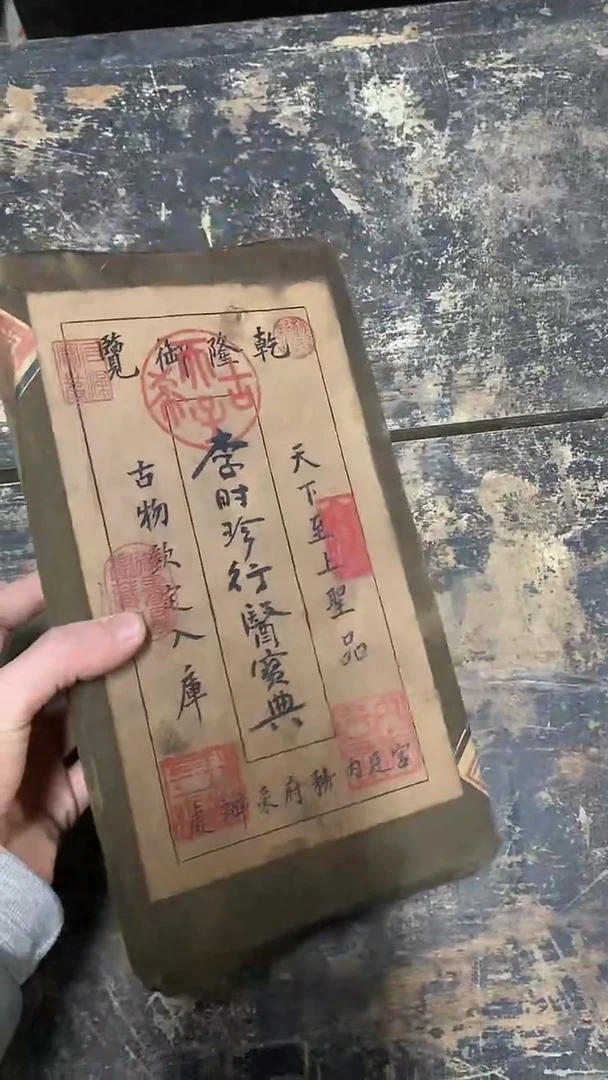 乾隆御覽
天下至上聖品
李时珍行醫寶典
古物欽定入庫
宮廷内務府采